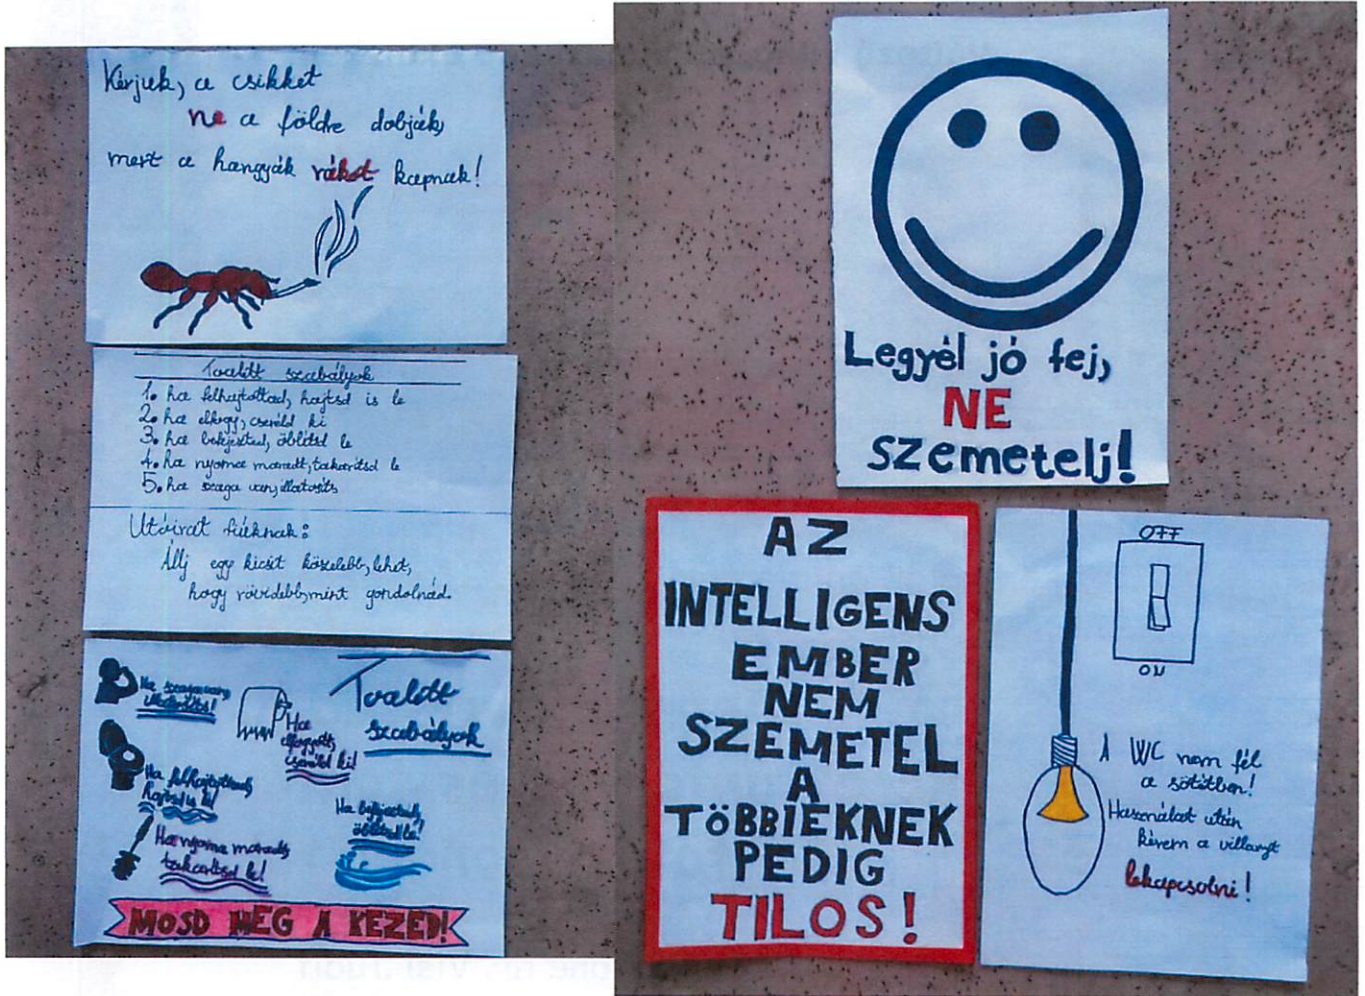 Kérjük, a csikket
ne a földre dobják,
mert a hangyák rákot kapnak!
Toalett szabályok
1. ha felhajtottad, hajtsd is le
2. ha elfogy, cseréld ki
3. ha befejezted, öblítsd le
4. ha nyoma maradt, takarítsd le
5. ha szaga van, illatosíts
Utóirat fiúknak:
Állj egy kicsit közelebb, lehet,
hogy rövidebb, mint gondolnád.
Toalett
szabályok
Ha szaga van,
illatosíts!
Ha
elfogyott,
cseréld ki!
Ha felhajtottad,
hajtsd is le!
Ha befejezted,
öblítsd le!
Ha nyoma maradt,
takarítsd le!
MOSD MEG A KEZED!
Legyél jó fej,
NE
szemetelj!
AZ
INTELLIGENS
EMBER
NEM
SZEMETEL
A
TÖBBIEKNEK
PEDIG
TILOS!
OFF
ON
A WC nem fél
a sötétben!
Használat után
kérem a villanyt
lekapcsolni!